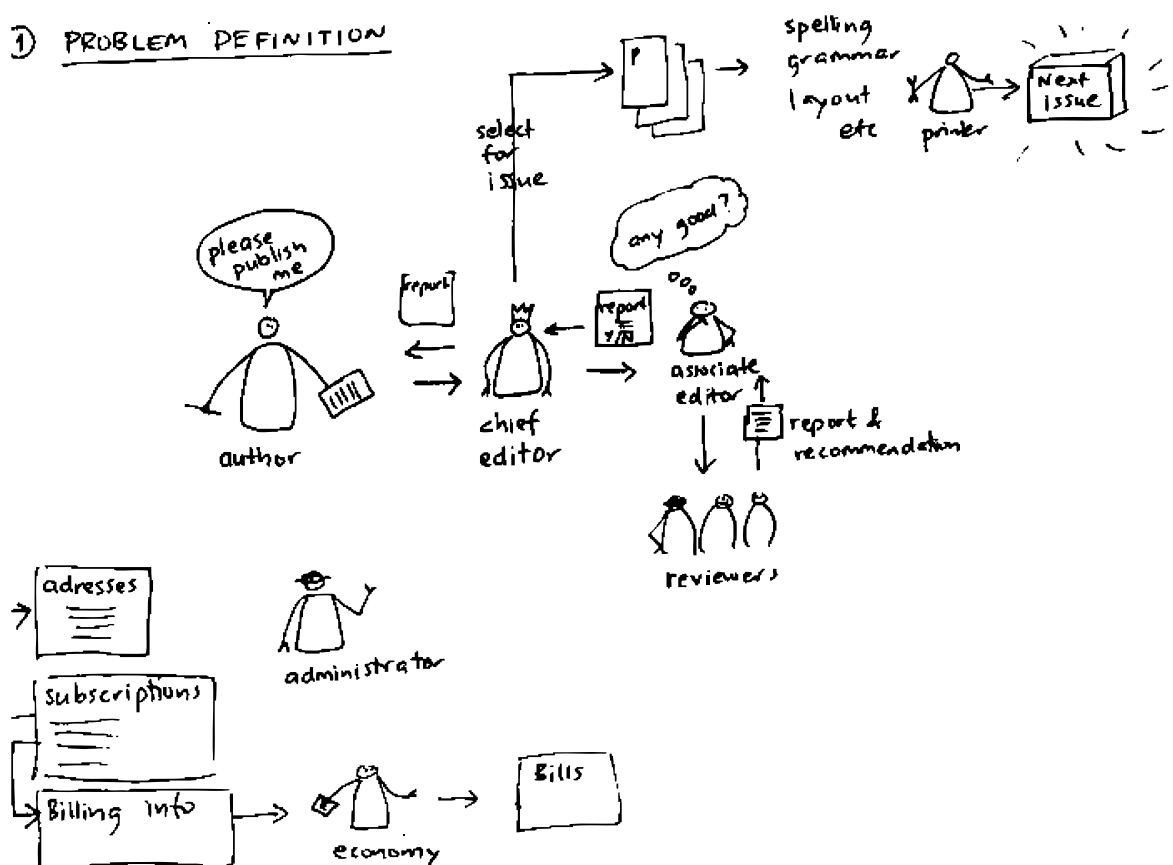 ① PROBLEM DEFINITION
P
spelling
grammar
layout
etc
printer
Next
issue
select
for
issue
any good?
please
publish
me
report
report
Y/N
author
chief
editor
associate
editor
report &
recommendation
reviewers
adresses
administrator
subscriptions
Billing info
economy
Bills